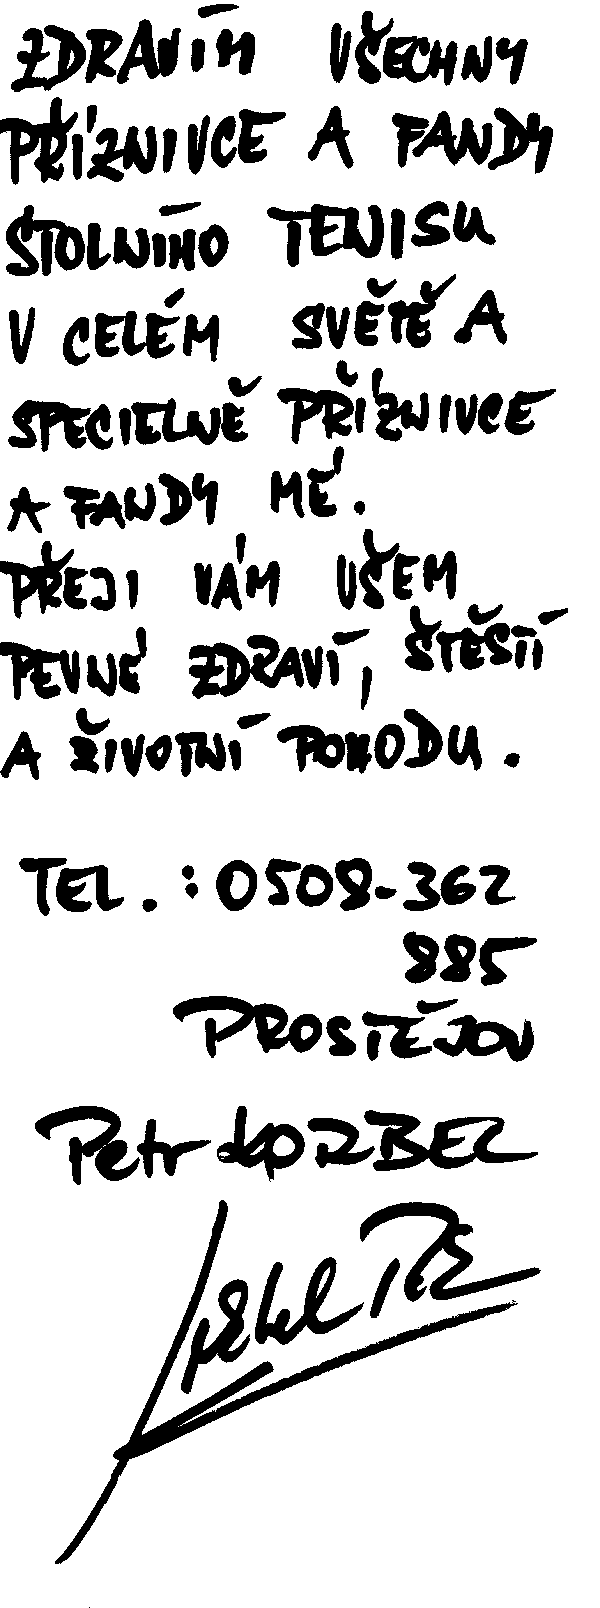 ZDRAVÍM VŠECHNY
PŘÍZNIVCE A FANDY
STOLNÍHO TENISU
V CELÉM SVĚTĚ A
SPECIELNĚ PŘÍZNIVCE
A FANDY MÉ.
PŘEJI VÁM VŠEM
PEVNÉ ZDRAVÍ, ŠTĚSTÍ
A ŽIVOTNÍ POHODU.
TEL.: 0508-362
885
PROSTĚJOV
Petr KORBEL